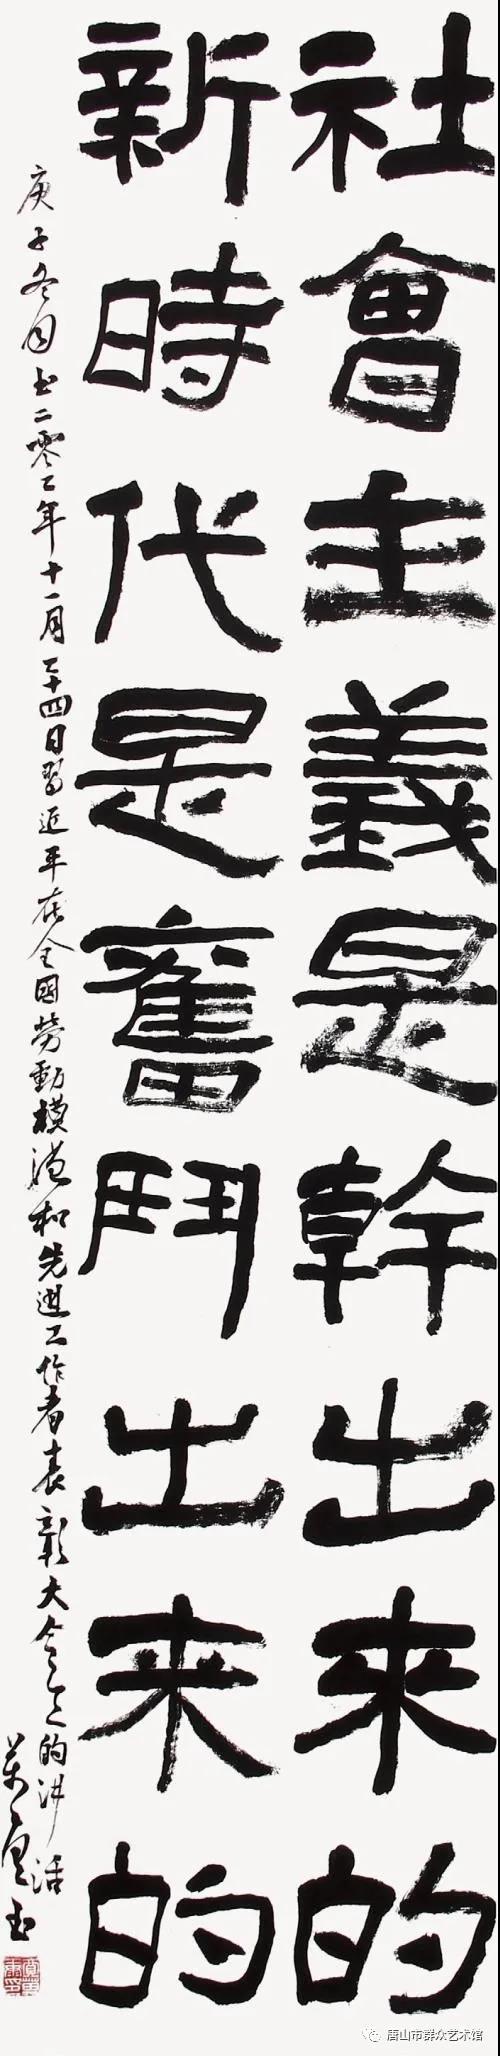 社會主義是幹出來的
新時代是奮鬥出来的
庚子冬月書二零二〇年十一月二十四日習近平在全國勞動模範和先進工作者表彰大會上的講話
唐山市群众艺术馆